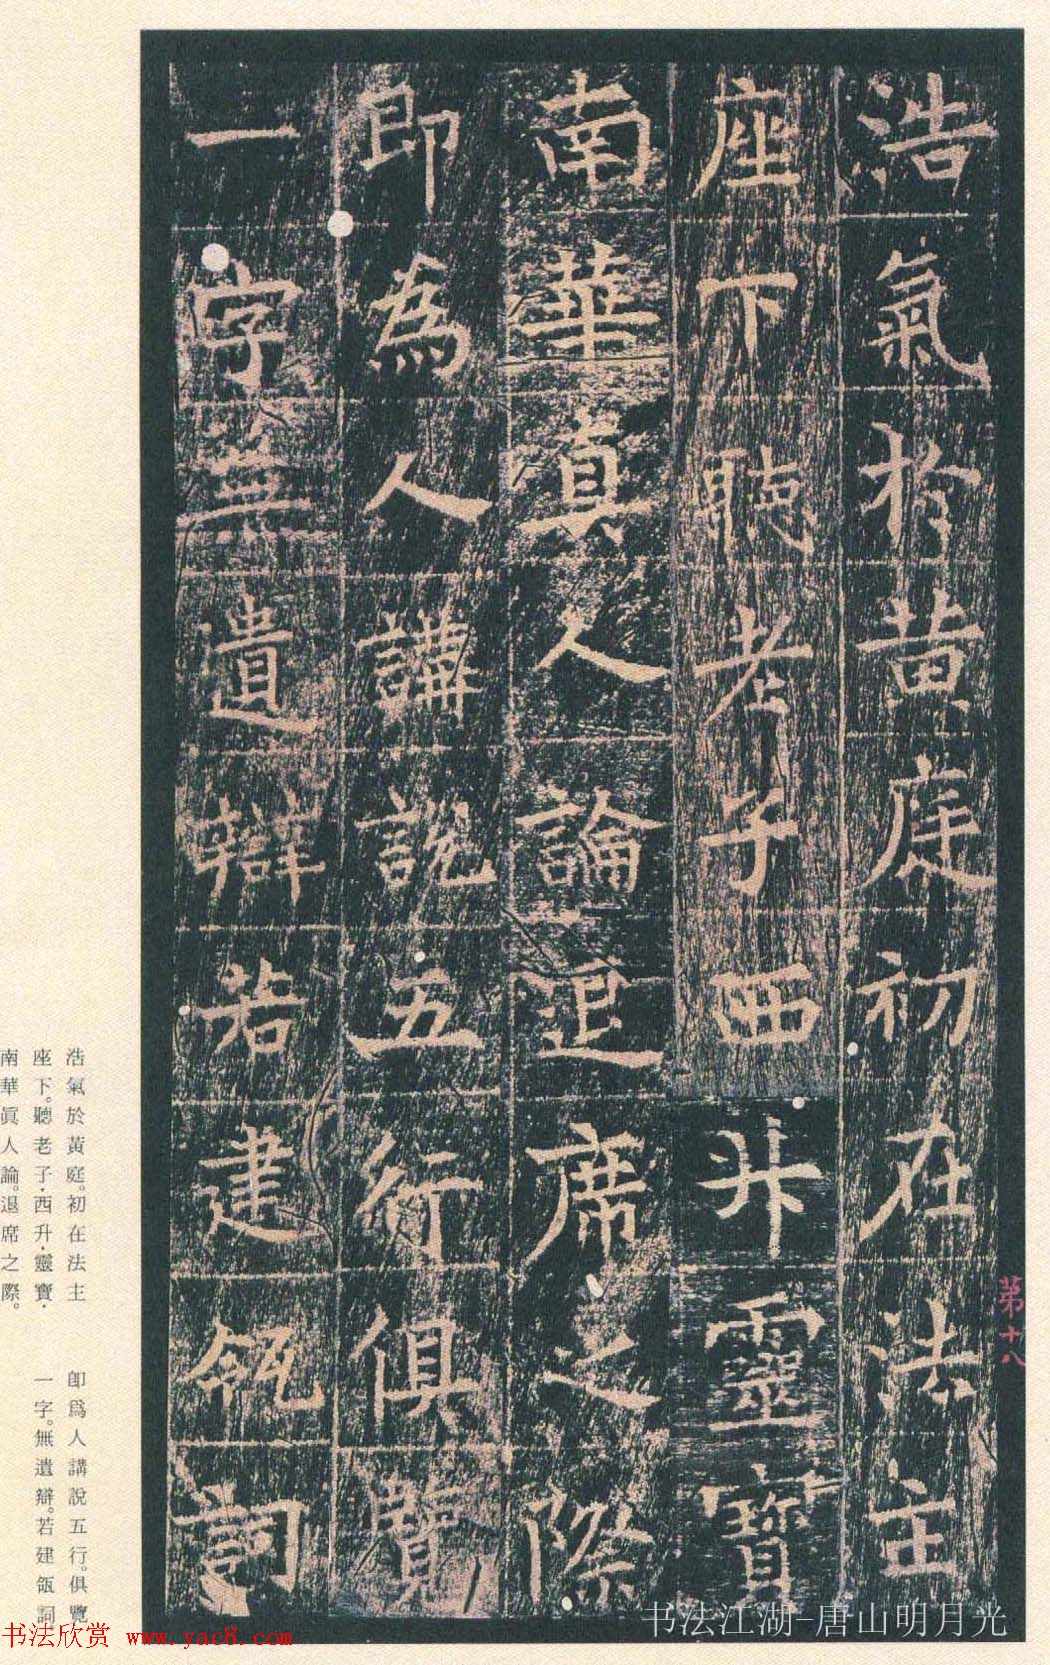 浩氣於黃庭初在法主
座下聽老子西升靈寶
南華真人論退席之際
即為人講說五行俱覽
一字無遺辯若建瓴詞
第十八
浩氣於黃庭。初在法主
座下。聽老子·西升·靈寶·
南華眞人論。退席之際。
卽爲人講說五行。俱覽
一字。無遺辯。若建瓴詞。
书法江湖-唐山明月光
书法欣赏 www.yac8.com